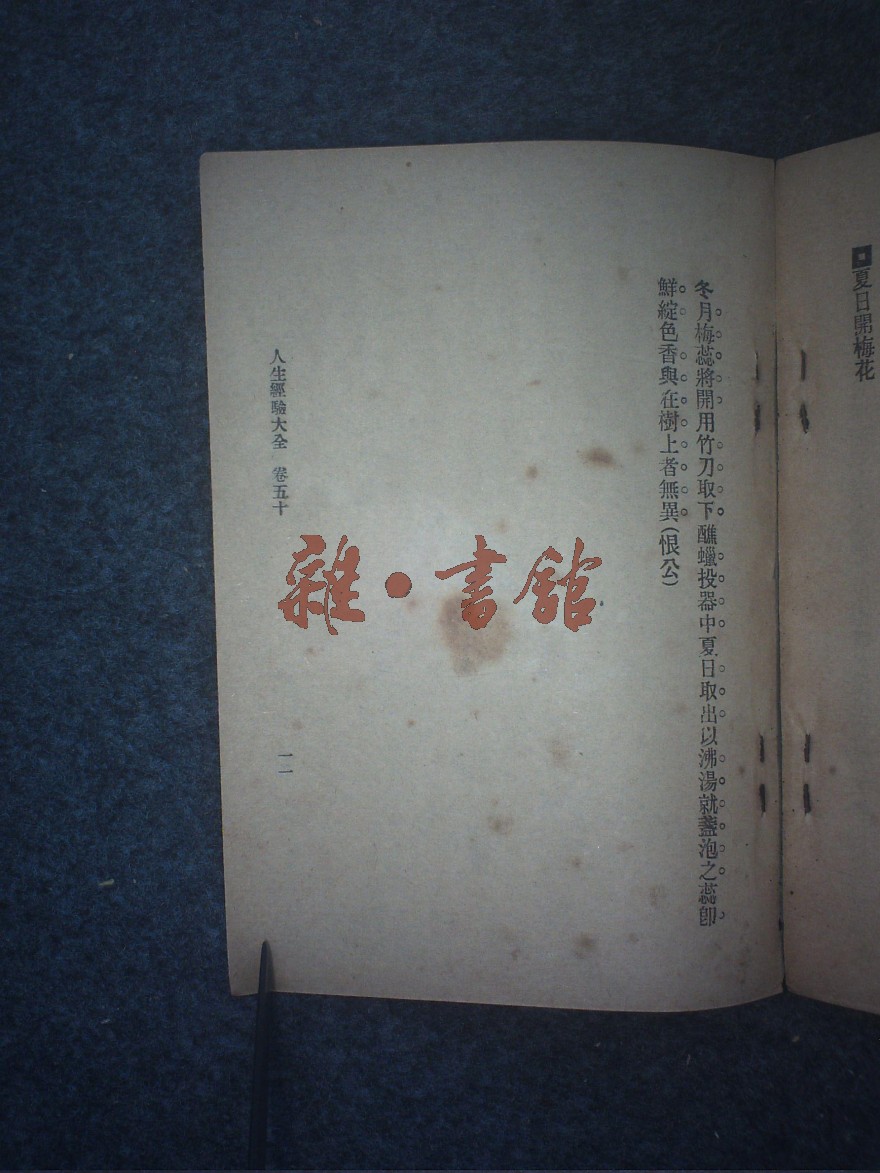 夏日開梅花
冬月梅蕊將開用竹刀取下醮蠟投器中夏日取出以沸湯就盞泡之蕊卽
鮮綻色香與在樹上者無異(恨公)
人生經驗大全 卷五十
一一
雜·書館